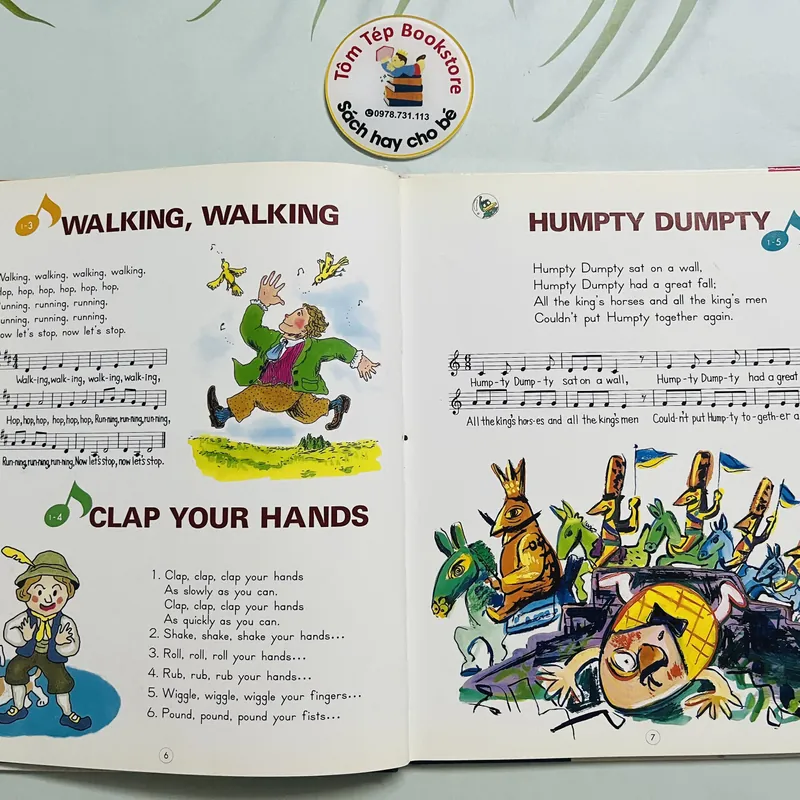 Tôm Tép Bookstore
0978.731.113
Sách hay cho bé
1-3
WALKING, WALKING
Walking, walking, walking, walking,
Hop, hop, hop, hop, hop, hop,
Running, running, running,
Running, running, running,
Now let's stop, now let's stop.
Walk-ing, walk-ing, walk-ing, walk-ing,
Hop, hop, hop, hop, hop, hop, Run-ning, run-ning, run-ning,
Run-ning, run-ning, run-ning, Now let's stop, now let's stop.
1-4
CLAP YOUR HANDS
1. Clap, clap, clap your hands
As slowly as you can.
Clap, clap, clap your hands
As quickly as you can.
2. Shake, shake, shake your hands...
3. Roll, roll, roll your hands...
4. Rub, rub, rub your hands...
5. Wiggle, wiggle, wiggle your fingers...
6. Pound, pound, pound your fists...
6
HUMPTY DUMPTY
1-5
Humpty Dumpty sat on a wall,
Humpty Dumpty had a great fall;
All the king's horses and all the king's men
Couldn't put Humpty together again.
Hump-ty Dump-ty sat on a wall, Hump-ty Dump-ty had a great
All the king's hors-es and all the king's men Could-n't put Hump-ty to-geth-er a
7